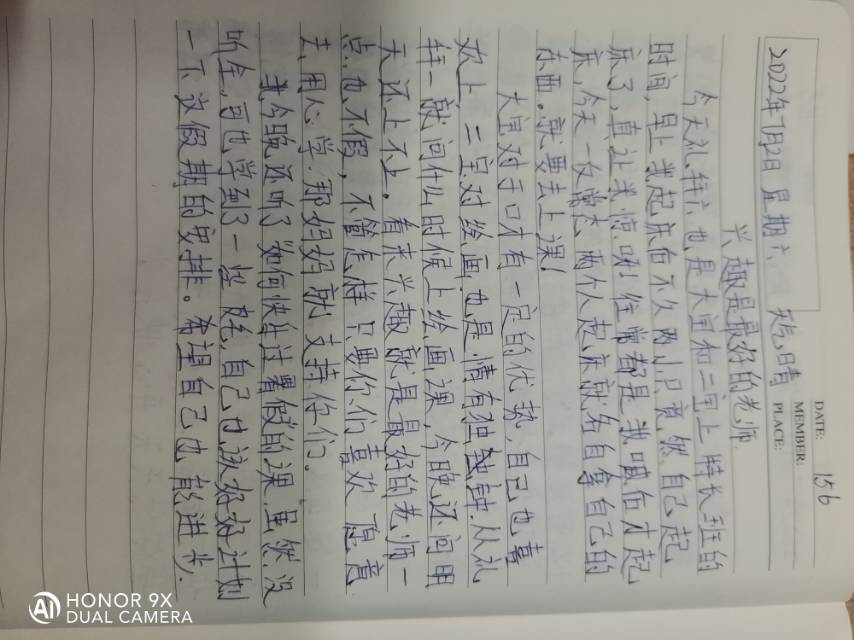 DATE: 156
MEMBER:
PLACE:
2022年7月2日 星期六 天气:晴
兴趣是最好的老师
今天礼拜六,也是大宝和二宝上特长班的
时间,早上我起床后不久两小只竟然自己起
床了,真让我惊呀!经常都是我喊后才起
床,今天一反常态,两个人起床就各自拿自己的
东西。就要去上课!
大宝对于口才有一定的优势,自己也喜
欢上,二宝对绘画也是情有独钟.从礼
拜一就问什么时候上绘画课,今晚还问明
天还上不上,看来兴趣就是最好的老师一
点也不假,不管怎样只要你们喜欢愿意
去用心学.那妈妈就支持你们。
我今晚还听了如何快乐过暑假的课.虽然没
听全,可也学到了一些,自己也该好好计划
一下这假期的安排。希望自己也能进步.
HONOR 9X
DUAL CAMERA
AI